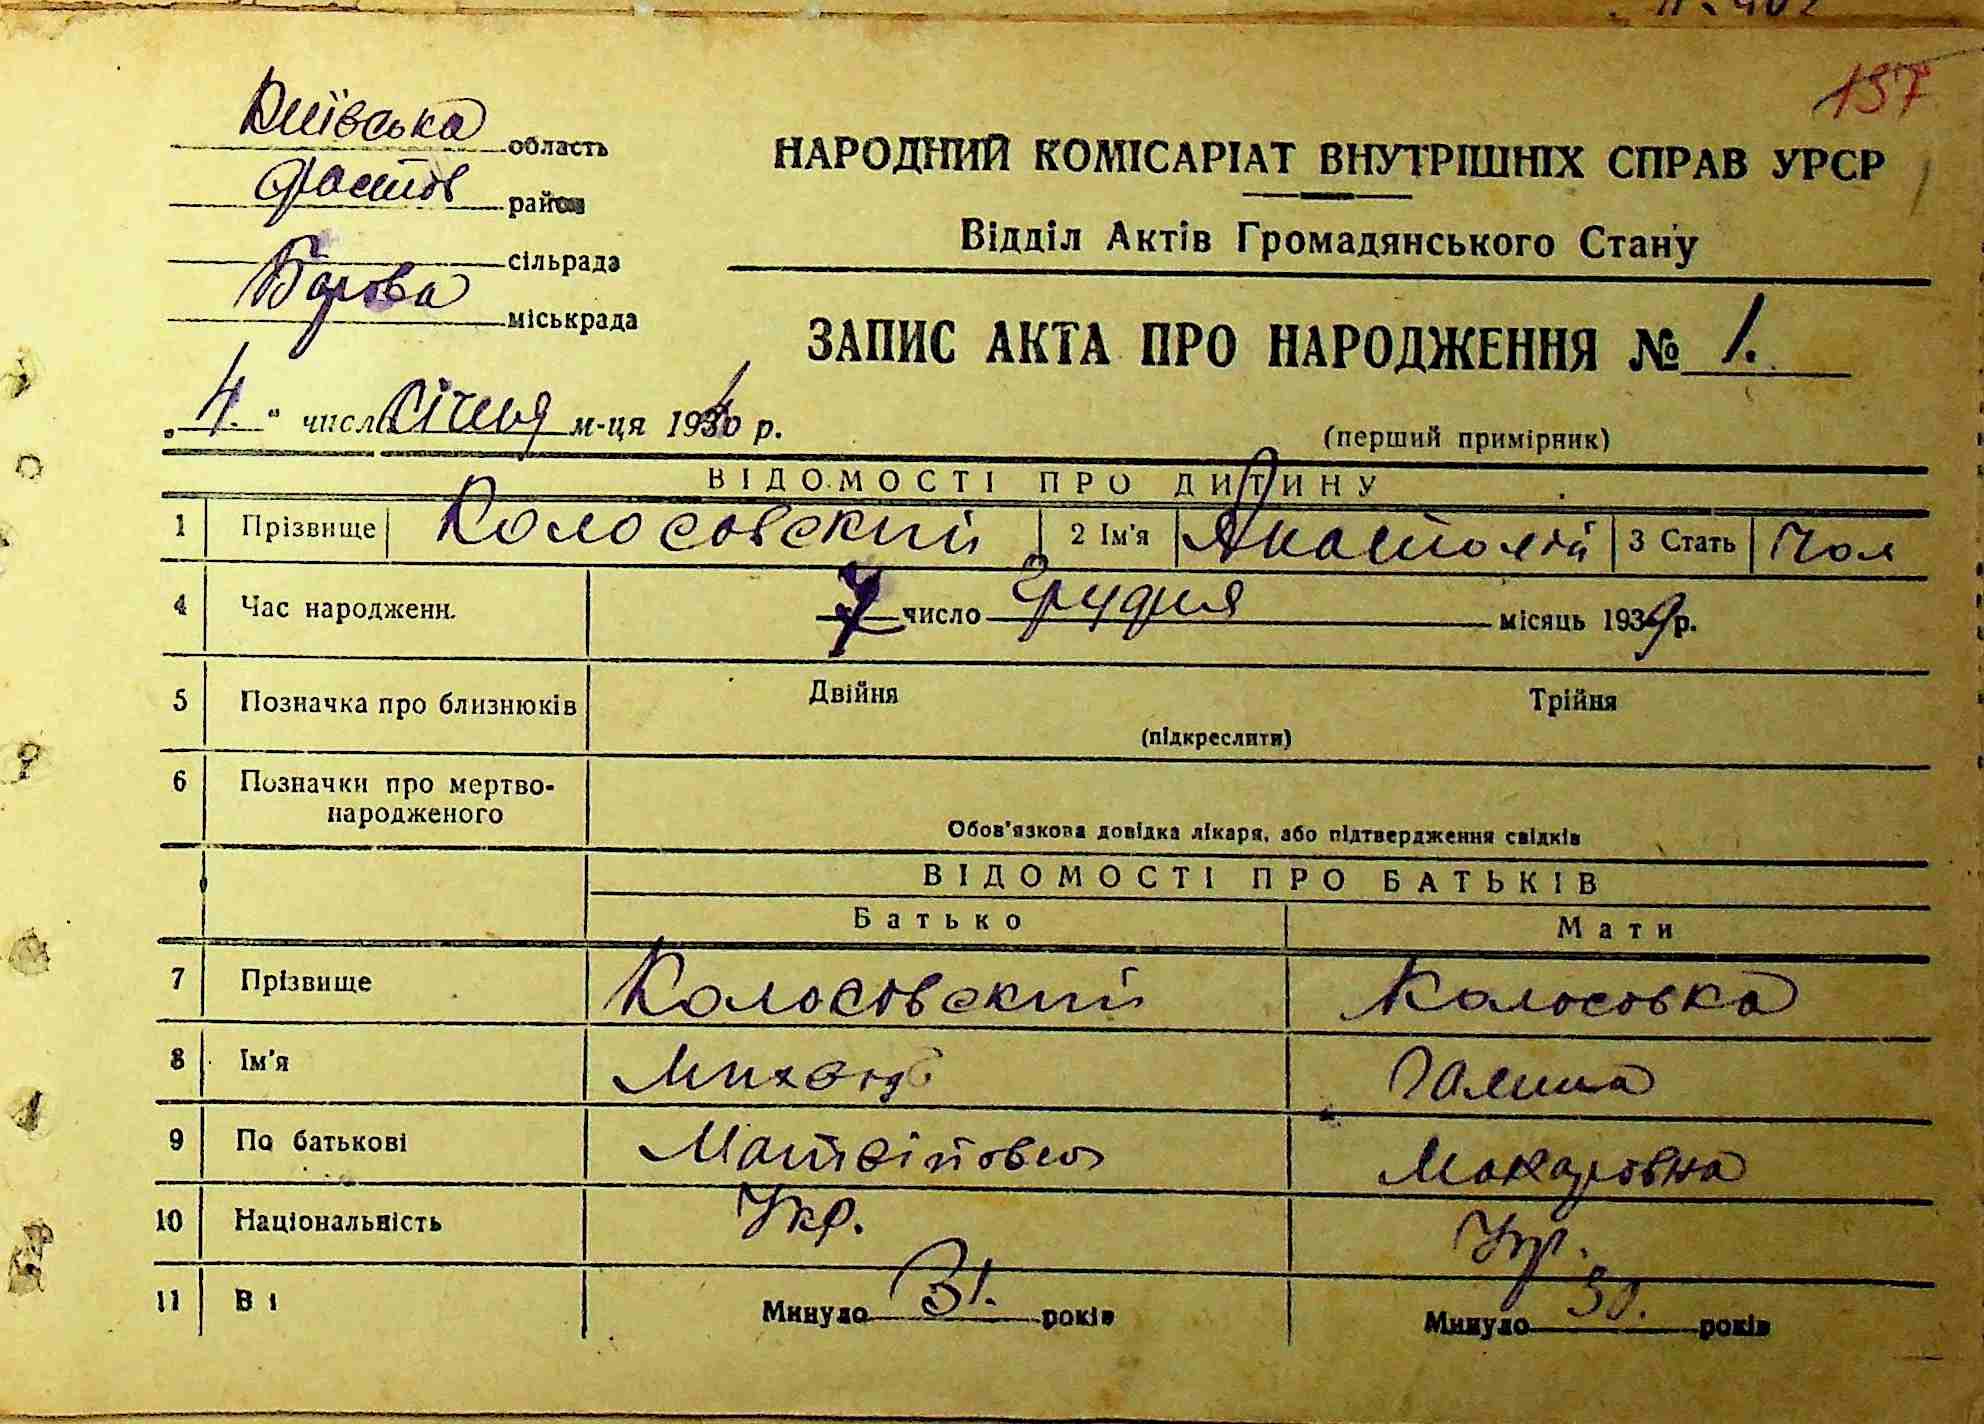 137
Київська область
Фастов район
сільрада
Борова міськрада
НАРОДНИЙ КОМІСАРІАТ ВНУТРІШНІХ СПРАВ УРСР
Відділ Актів Громадянського Стану
ЗАПИС АКТА ПРО НАРОДЖЕННЯ № 1.
„4." числа січня м-ця 1940 р.
(перший примірник)
ВІДОМОСТІ ПРО ДИТИНУ
1 Прізвище Колосовский 2 Ім'я Анатолій 3 Стать Чол
4 Час народженн. 7 число грудня місяць 1939 р.
5 Позначка про близнюків Двійня Трійня
(підкреслити)
6 Позначки про мертво-
народженого
Обов'язкова довідка лікаря, або підтвердження свідків
ВІДОМОСТІ ПРО БАТЬКІВ
Батько Мати
7 Прізвище Колосовский Колосовка
8 Ім'я Галина
9 По батькові Матвійович Макаровна
10 Національність Укр. Укр.
11 Ві Минуло 31. років Минуло 30. років